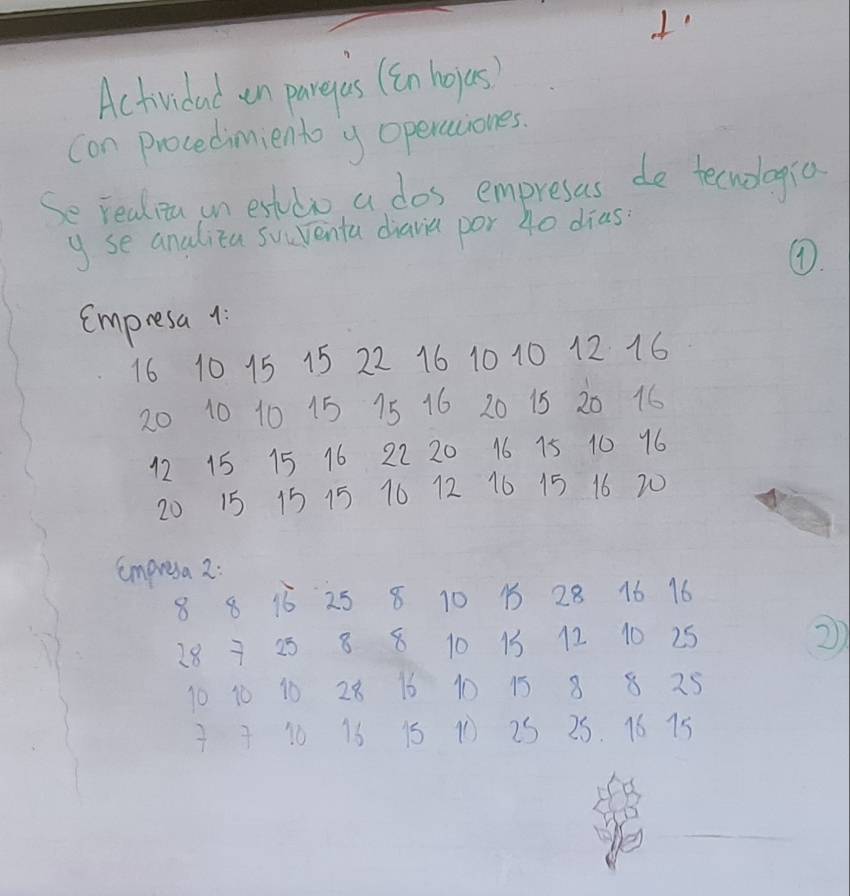 1.
Actividad en parejas (En hojas)
con procedimiento y operaciones.
Se realiza un estudio a dos empresas de tecnología
y se analiza su venta diaria por 40 días:
①.
Empresa 1:
16 10 15 15 22 16 10 10 12 16
20 10 10 15 15 16 20 15 20 16
12 15 15 16 22 20 16 15 10 16
20 15 15 15 16 12 16 15 16 20
Empresa 2:
8 8 16 25 8 10 15 28 16 16
28 7 25 8 8 10 15 12 10 25
2)
10 10 10 28 16 10 15 8 8 25
7 7 10 16 15 10 25 25. 16 15